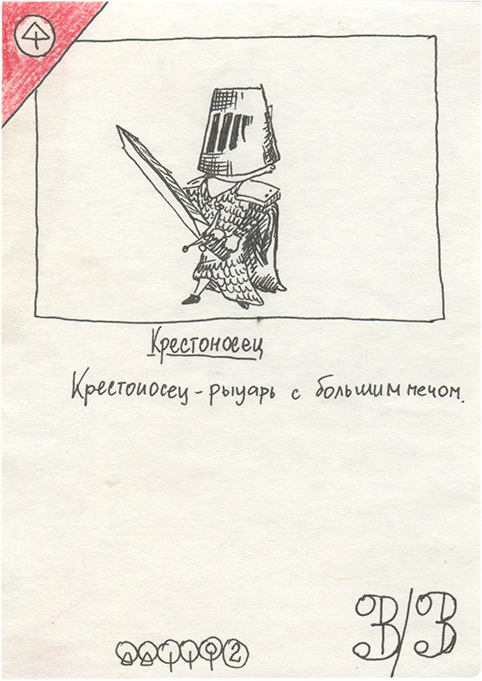 Крестоносец
Крестоносец - рыцарь с большим мечом.
2
3/3